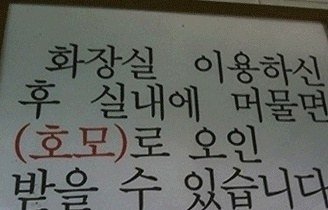 화장실 이용하신
후 실내에 머물면
(호모)로 오인
받을 수 있습니다